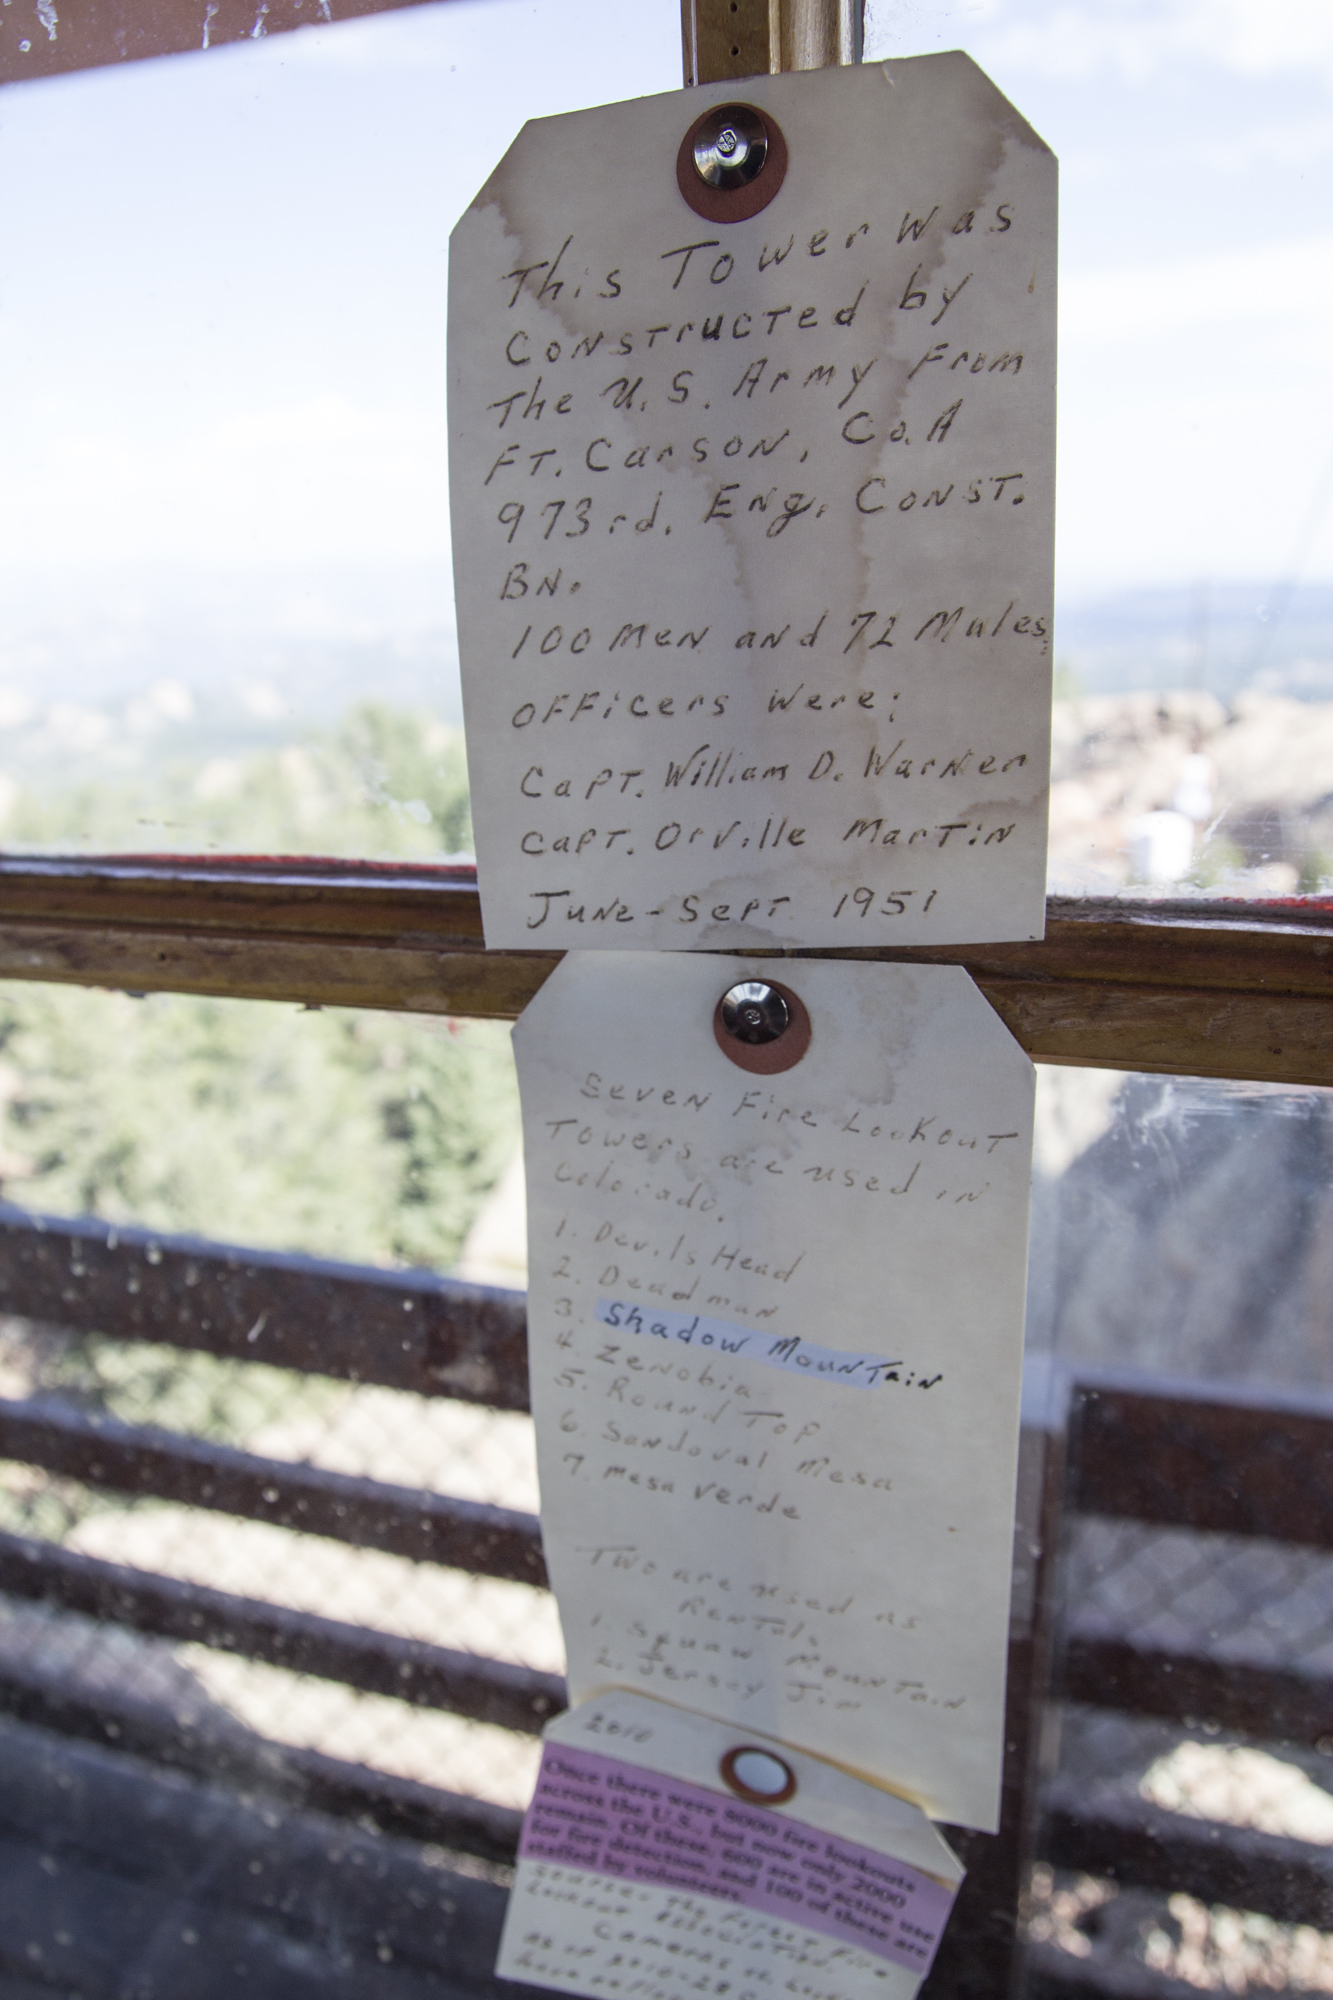 This Tower was
Constructed by
The U.S. Army From
FT. Carson, Co. A
973rd. Eng. Const.
BN.
100 Men and 72 Mules
Officers were;
Capt. William D. Warner
Capt. Orville Martin
June-Sept 1951
Seven Fire Lookout
Towers are used in
Colorado.
1. Devils Head
2. Deadman
3. Shadow Mountain
4. Zenobia
5. Round Top
6. Sandoval Mesa
7. Mesa Verde
Two are used as
Rentals
1. Squaw Mountain
2. Jersey Jim
2010
Once there were 8000 fire lookouts
across the U.S., but now only 2000
remain. Of these, 600 are in active use
for fire detection, and 100 of these are
staffed by volunteers.
Source: The Forest Fire
Lookout Association.
Cameras
As of 2010-28
have